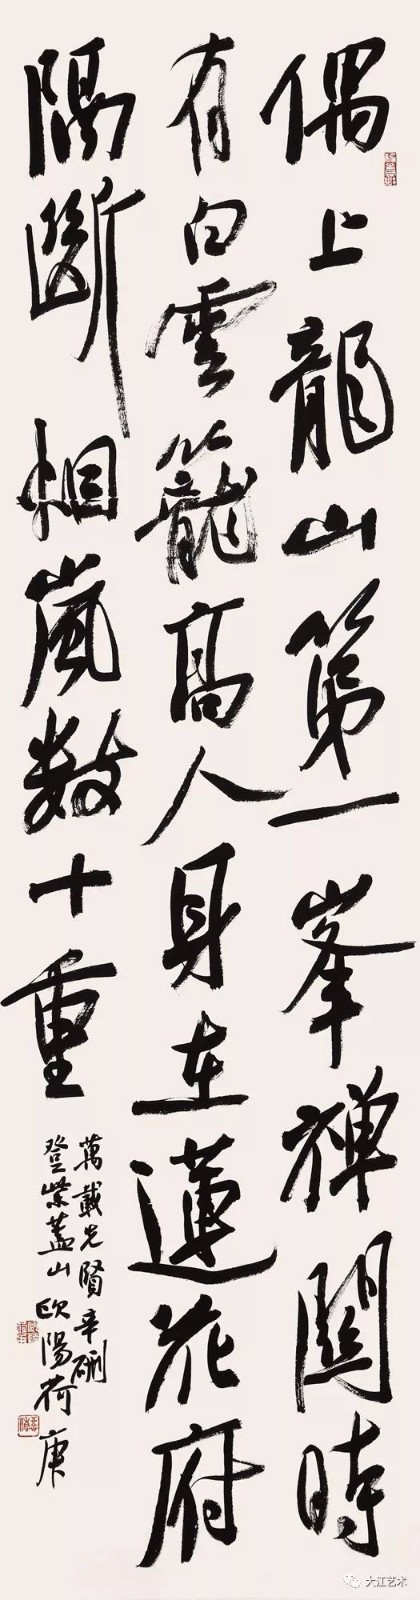 偶上龍山第一峯禪關時
有白雲籠高人身在蓮花府
隔斷烟嵐數十重
萬載先賢辛硎
登紫蓋山 歐陽荷庚
大江艺术